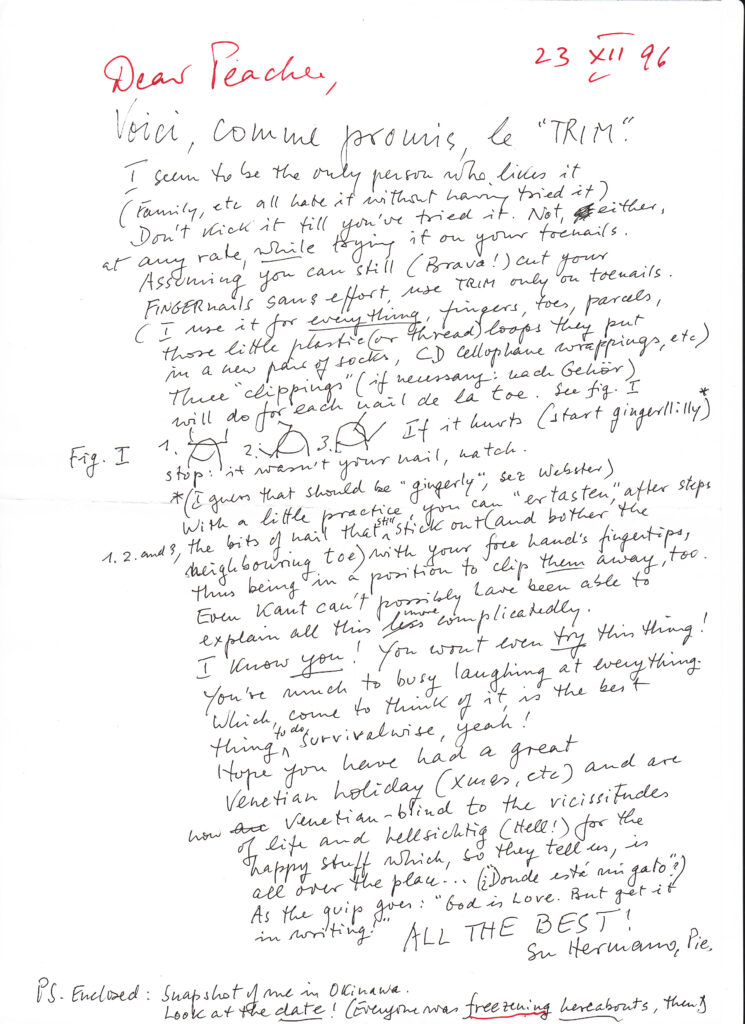 23 XII 96
Dear Peacher,
Voici, comme promis, le "TRIM".
I seem to be the only person who likes it
(Family, etc all hate it without having tried it)
Don't kick it till you've tried it. Not, either,
at any rate, while trying it on your toenails.
Assuming you can still (Brava!) cut your
FINGERnails sans effort, use TRIM only on toenails.
(I use it for everything, fingers, toes, parcels,
those little plastic (or thread) loops they put
in a new pair of socks, CD cellophane wrappings, etc)
Three "clippings" (if necessary: nach Gehör)
will do for each nail de la toe. See fig. I
Fig. I 1. 2. 3. If it hurts (start gingerllilly)*
stop: it wasn't your nail, natch.
*(I guess that should be "gingerly", sez Webster)
With a little practice, you can "ertasten," after steps
1. 2. and 3, the bits of nail that still stick out (and bother the
neighbouring toe) with your free hand's fingertips,
thus being in a position to clip them away, too.
Even Kant can't possibly have been able to
explain all this less more complicatedly.
I know you! You won't even try this thing!
You're much to busy laughing at everything.
Which, come to think of it, is the best
thing to do, survivalwise, yeah!
Hope you have had a great
Venetian holiday (Xmas, etc) and are
now are Venetian-blind to the vicissitudes
of life and hellsichtig (Hell!) for the
happy stuff which, so they tell us, is
all over the place... (¿"Donde está mi gato"?)
As the quip goes: "God is Love. But get it
in writing!" ALL THE BEST!
Su Hermano, Pie.
PS. Enclosed: Snapshot of me in Okinawa.
Look at the date! (Everyone was freezening hereabouts, then!)